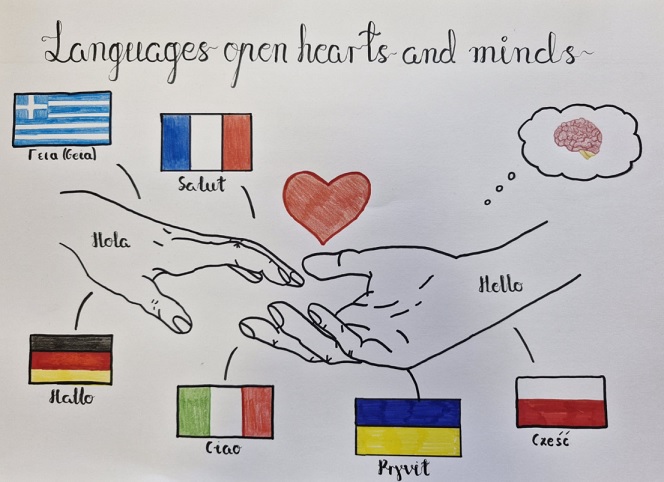 Languages open hearts and minds
Γεια (Geia)
Salut
Hola
Hello
Hallo
Ciao
Pryvit
Cześć